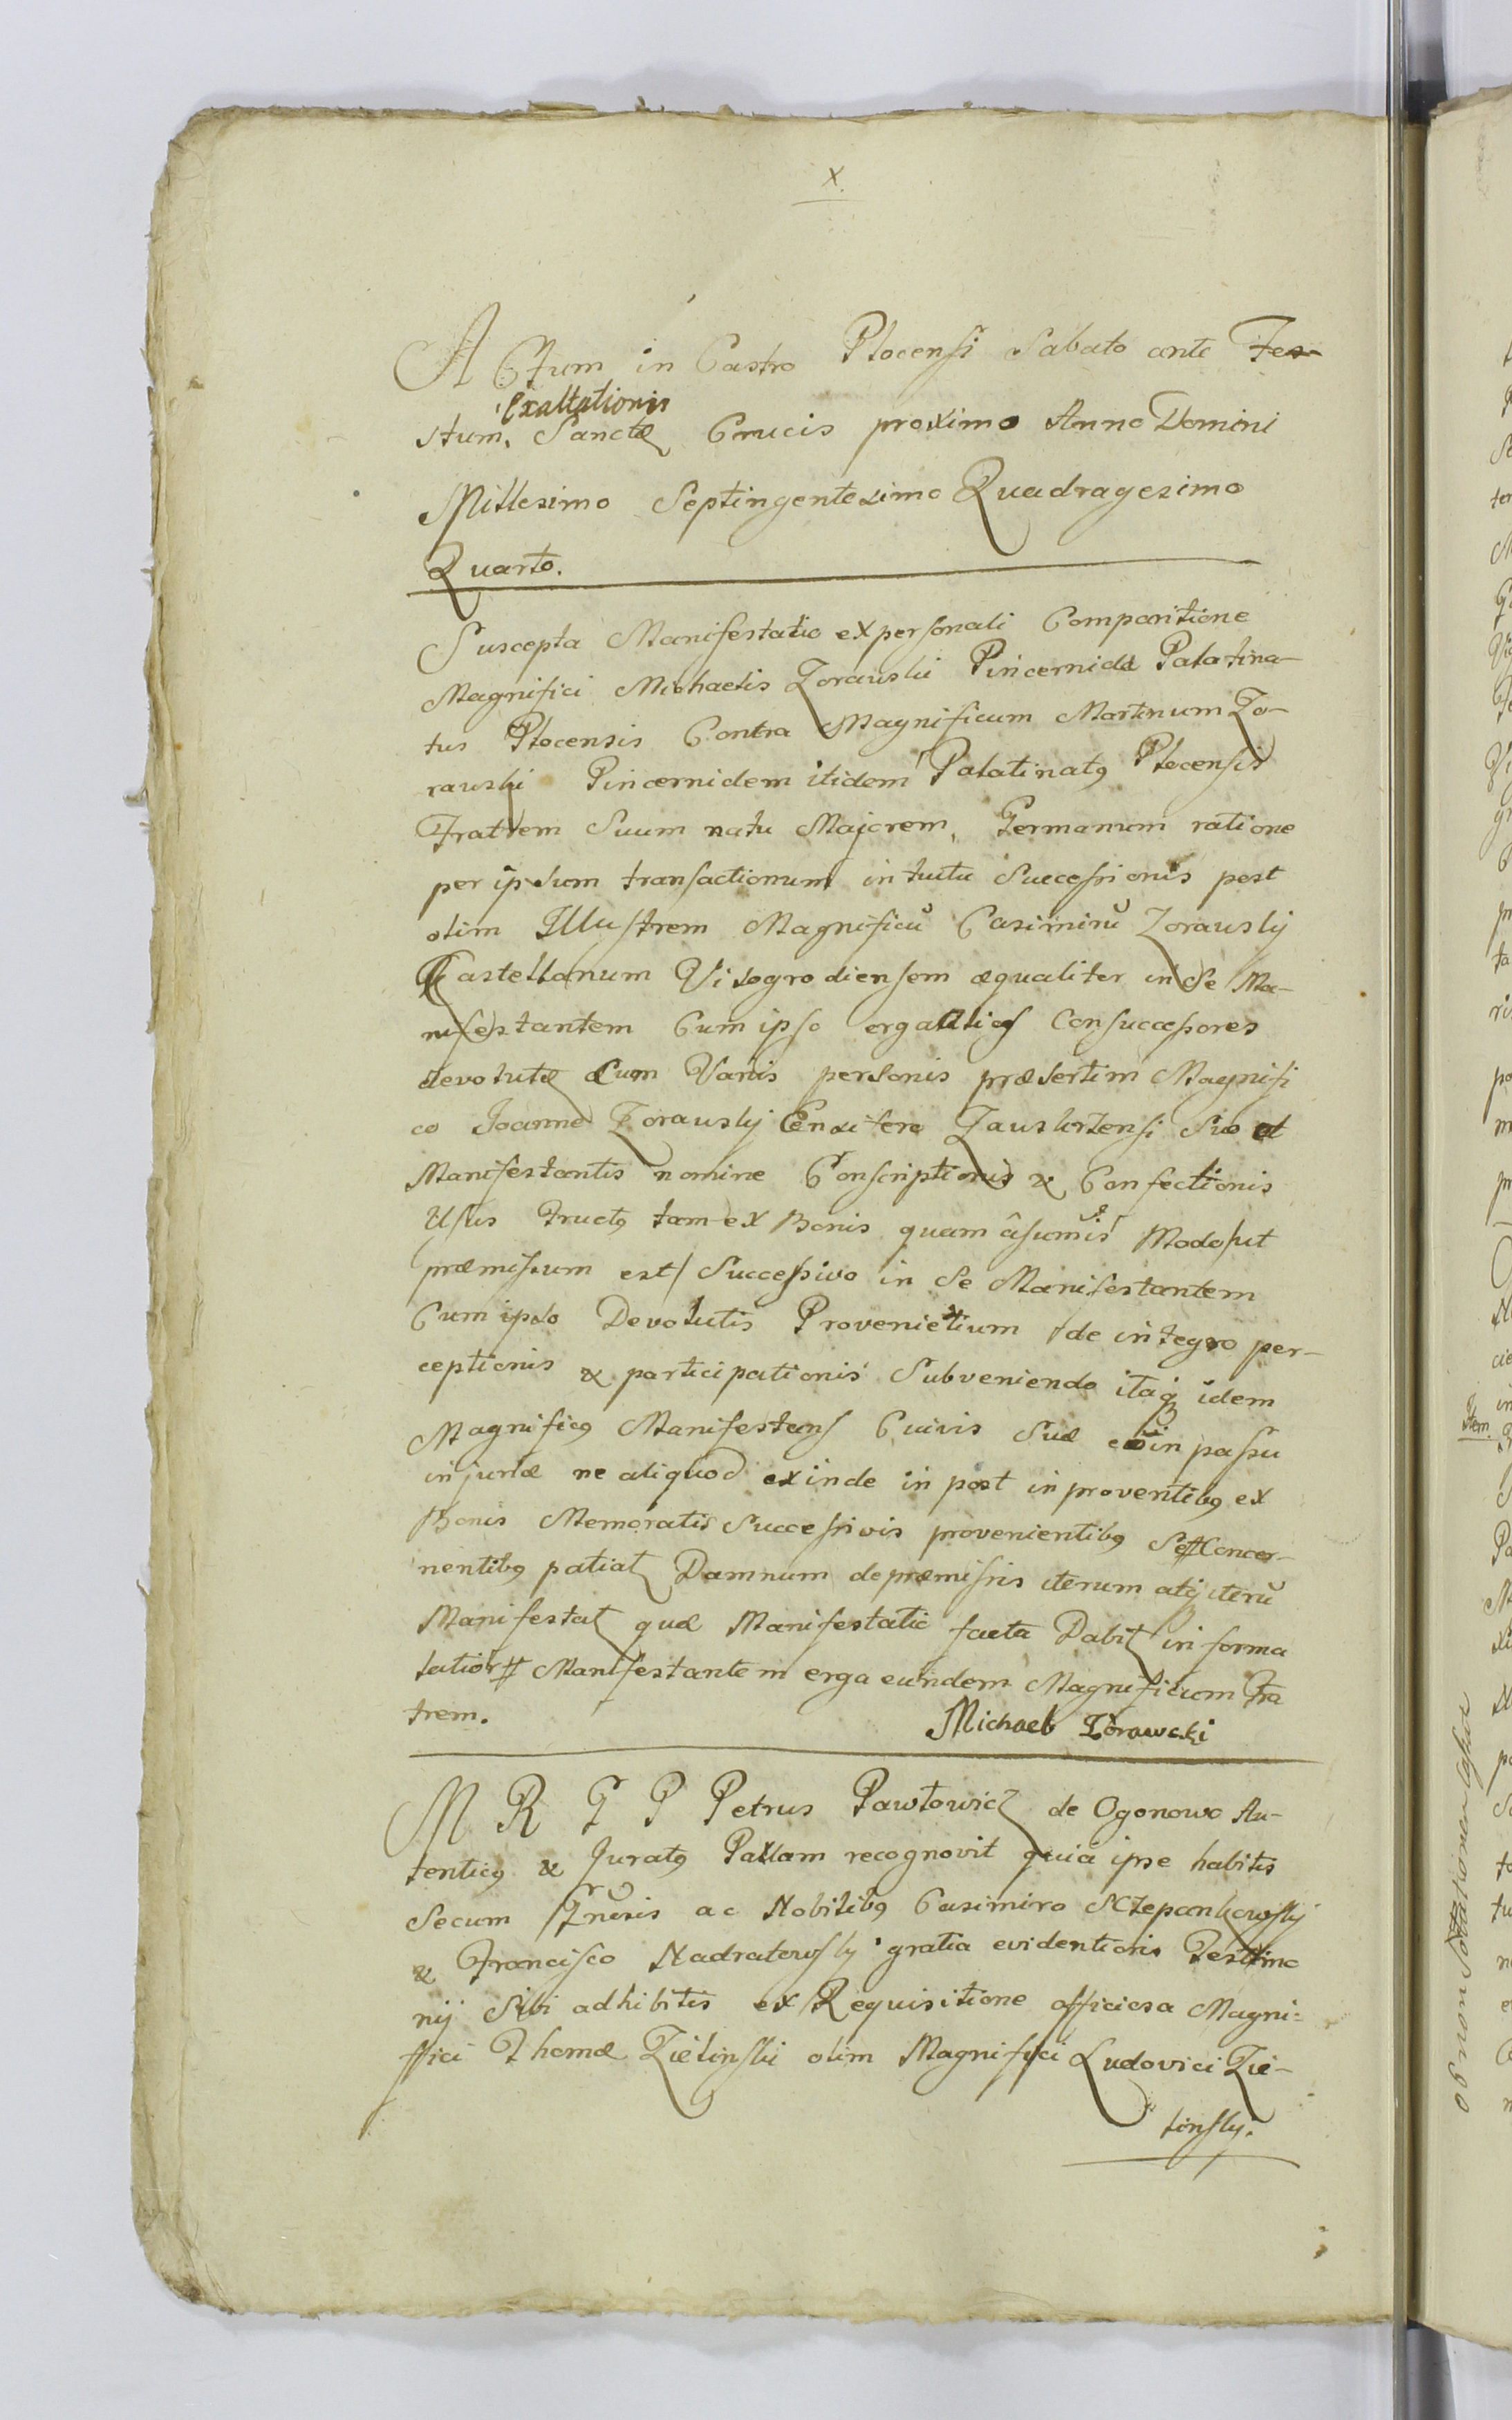 X.
Actum in Castro Plocensi Sabato ante Fes-
Exaltationis
stum, Sanctæ Crucis proximo Anno Domini
Millesimo Septingentesimo Quadragesimo
Quarto.
Suscepta Manifestatio ex personali Comparitione
Magnifici Michaelis Zorawski Pincernidæ Palatina-
tus Plocensis Contra Magnificum Martinum Zo-
rawski Pincernidem itidem Palatinatꝯ Plocensis
Fratrem Suum natu Majorem, Germanum ratione
per ipsum transactionum intuitu Successionis post
olim Illustrem Magnificū Casimirū Zorawsky
Castellanum Visogrodiensem æqualiter in Se Ma-
nifestantem Cum ipso erga Consuccessores
devolutæ Cum Variis personis præsertim Magnifi
co Joanne Zorawsky Ensifero Suo et
Manifestantis nomine Conscriptionis & Confectionis
Usus Fructꝯ tam ex Bonis quam Modo ut
præmissum est Successivo in Se Manifestantem
Cum ipso Devolutis Provenientium de integro per-
ceptionis & participationis Subveniendo itaq idem
Magnificꝯ Manifestans Cuivis Suæ in passu
injuriæ ne aliquod exinde in post in proventibꝯ ex
Bonis Memoratis Successivis provenientibꝯ Concer-
nentibꝯ patiat Damnum de præmissis iterum atq iterū
Manifestat quæ Manifestatio facta Dabit in forma
latiori Manifestantem erga eundem Magnificum Fra
trem.
Michael Zorawski
M R G P Petrus Pawłowicz de Ogonowo Au-
tenticꝯ & Juratꝯ Pallam recognovit quia ipse habitis
Secum Gnēris ac Nobilibꝯ Casimiro Sczepankowsky
& Francisco Nadratowsky gratia evidentioris Testimo
nij Sibi adhibitis ex Requisitione officiosa Magni=
ffici Thomæ Zielinski olim Magnifici Ludovici Zie-
linsky.
Item.